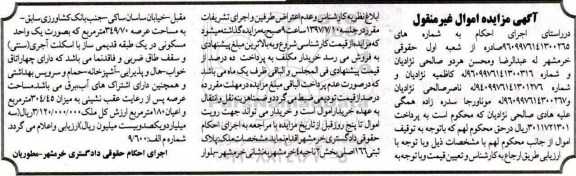 آگهی مزایده اموال غیرمنقول
درراستای اجرای احکام به شماره های
۹۶۰۹۹۷۶۱۴۱۳۰۰۲۶۵صادره از شعبه اول حقوقی
خرمشهر له عبدالرضا ومحسن هردو صالحی نژادیان
و شماره ۹۶۰۹۹۷۶۱۴۱۳۰۰۳۱۶له کاظمیه نژادیان و
شماره ۹۴۰۹۹۷۶۱۴۱۳۰۱۲۷۶له ناصرصالحی نژادیان
و۹۶۰۹۹۷۶۱۴۱۳۰۰۲۶۷له مونا ورجا سدره زاده همگی
علیه هادی صالحی نژادیان که محکوم است به پرداخت
۳۰۱۱۷۲۱۳۰۱ریال درحق محکوم لهم که باتوجه به توقیف
اموال از جانب محکوم لهم با مشخصات ذیل وبا توجه به
ارزیابی طریق ارجاع به کارشناس و تعیین قیمت وبا توجه به
ابلاغ نظریه کارشناس وعدم اعتراض طرفین واجرای تشریفات
مقرر در جلسه ۱۳۹۷/۱۰ ساعت ۹صبح به مزایده گذاشته میشود
که مزایده از قیمت کارشناسی شروع و به بالاترین مبلغ پیشنهادی
به فروش می رسد خریدار مکلف به پرداخت ده درصد از
قیمت پیشنهادی فی المجلس و الباقی ظرف یک ماه می باشد
که درصورت عدم پرداخت الباقی مبلغ مزایده درمهلت مقرر ده
درصد از قیمت تودیعی ضبط می گردد وضمنا هزینه نقل و انتقال
به عهده خریداراموال است و خریدار می تواند جهت رویت
اموال تا پنج روزقبل ازتاریخ مزایده با مراجعه به اجرای احکام
حقوقی دادگستری خرمشهر اقدام نماید.مشخصات ملک:پلاک
ثبتی۱۶۶اصلی بخش۲ناحیه ۱خرمشهربه نشانی خرمشهر-بلوار
مقبل-خیابان ساسان ساکی-جنب بانک کشاورزی سابق-
به مساحت عرصه ۳۴۹/۷۰مترمربع که بصورت یک واحد
مسکونی در یک طبقه قدیمی ساز با اسکلت آجری(سنتی)
و سقف طاق ضربی و فاقدنما می باشد که دارای چهاراتاق
خواب-هال و پذیرایی-آشپزخانه-حمام و سرویس بهداشتی
و همچنین دارای اشتراک های آب،برق می باشد.مساحت
عرصه پس از رعایت عقب نشینی به میزان ۳۰۴/۴۵مترمربع
و اعیان۱۸۰مترمربع ارزش کل ملک ۳/۱۲۰/۰۰۰/۰۰۰ریال(سه
میلیاردویکصدوبیست میلیون ریال)ارزیابی واعلام می گردد.
شماره م الف:۹/۶۰۰
اجرای احکام حقوقی دادگستری خرمشهر-مطوریان